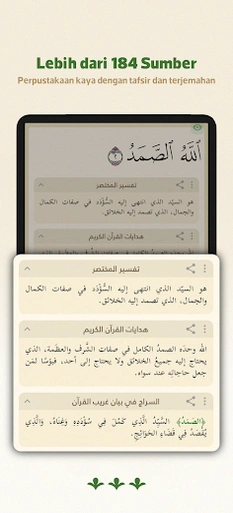 Lebih dari 184 Sumber
Perpustakaan kaya dengan tafsir dan terjemahan
ٱللَّهُ ٱلصَّمَدُ ٢
تفسير المختصر
هو السيّد الذي انتهى إليه السُّؤْدَد في صفات الكمال
والجمال، الذي تصمد إليه الخلائق.
هدايات القرآن الكريم
تفسير المختصر
هو السيّد الذي انتهى إليه السُّؤْدَد في صفات الكمال
والجمال، الذي تصمد إليه الخلائق.
هدايات القرآن الكريم
الله وحده الصمدُ الكامل في صفات الشَّرف والعظَمة، الذي
يحتاج إليه جميعُ الخلائق ولا يحتاج إلى أحد، فبؤسًا لمَن
جعل حاجاتِه عند سواه.
السراج في بيان غريب القرآن
﴿الصَّمَدُ﴾ السَّيِّدُ الَّذِي كَمُلَ فِي سُؤْدَدِهِ وَغِنَاهُ، وَالَّذِي
يُقْصَدُ فِي قَضَاءِ الحَوَائِجِ.